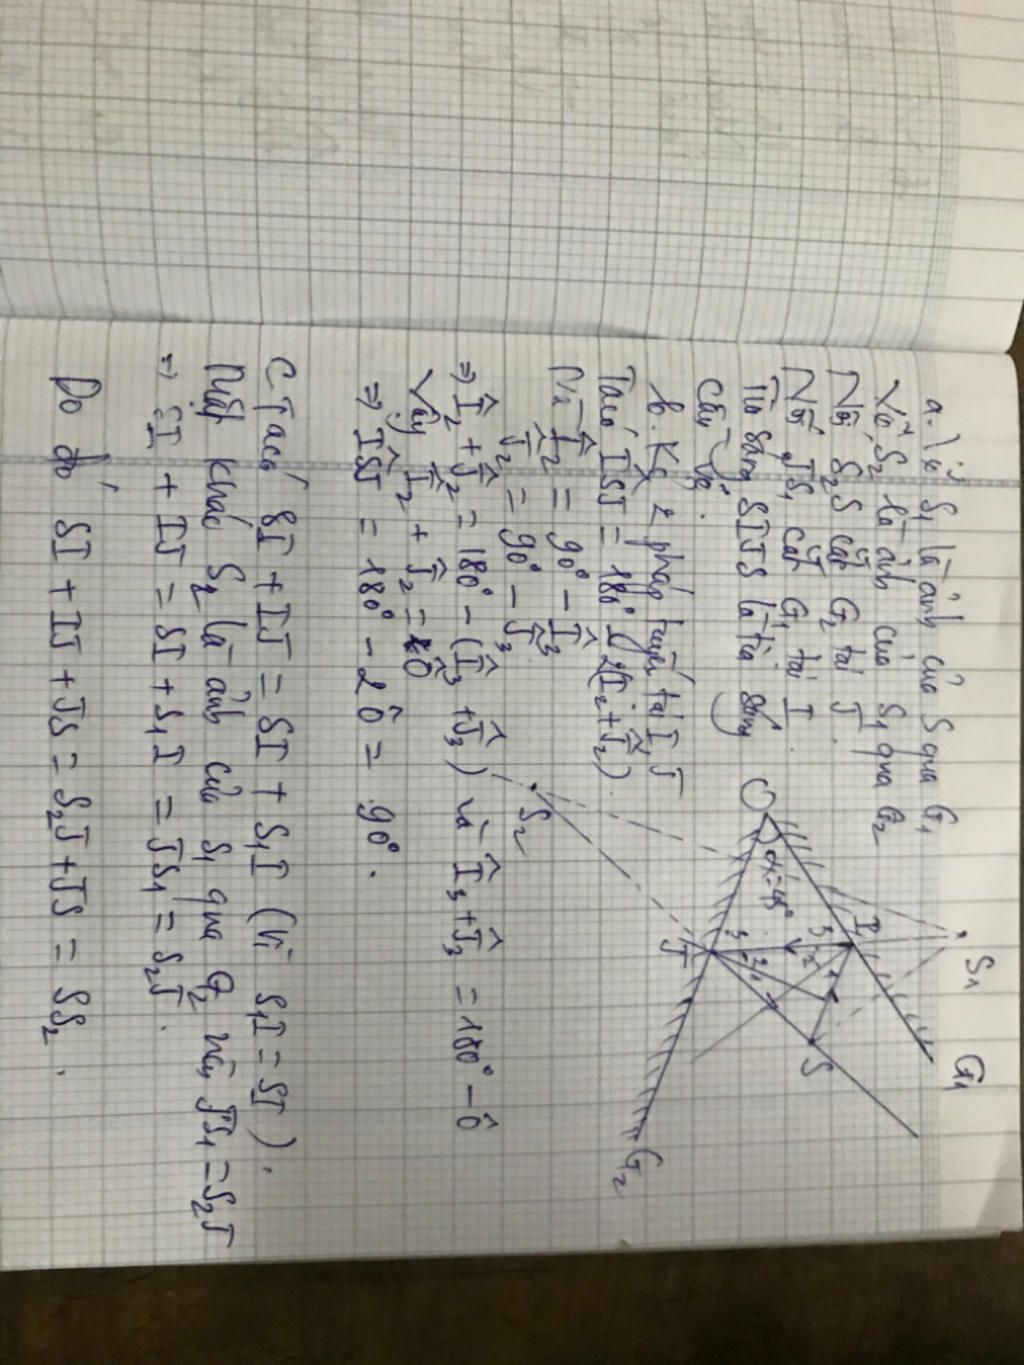 a. Vẽ S₁ là ảnh của S qua G₁
Vẽ S₂ là ảnh của S₁ qua G₂
Nối S₂S cắt G₂ tại J
Nối JS₁ cắt G₁ tại I.
Tia sáng SIJS là tia sáng
cần vẽ.
b. Kẻ 2 pháp tuyến tại I, J
Ta có ISJ = 180° - 2(I₂+J₂).
I₂ = 90° - I₃
J₂ = 90° - J₃
=> I₂ + J₂ = 180° - (I₃ + J₃) và I₃+J₃ = 180° - O
Vậy I₂ + J₂ = O
=> ISJ = 180° - 2O = 90°.
C Ta có SI + IJ = SI + S₁I (Vì S₁I = SI).
Mặt khác S₂ là ảnh của S₁ qua G₂ nên JS₁ = S₂J
=> SI + IJ = SI + S₁I = JS₁ = S₂J.
Do đó SI + IJ + JS = S₂J + JS = SS₂.
S₁
G₁
I
3
2
1
O
α=45°
S
3
2
1
J
S₂
G₂